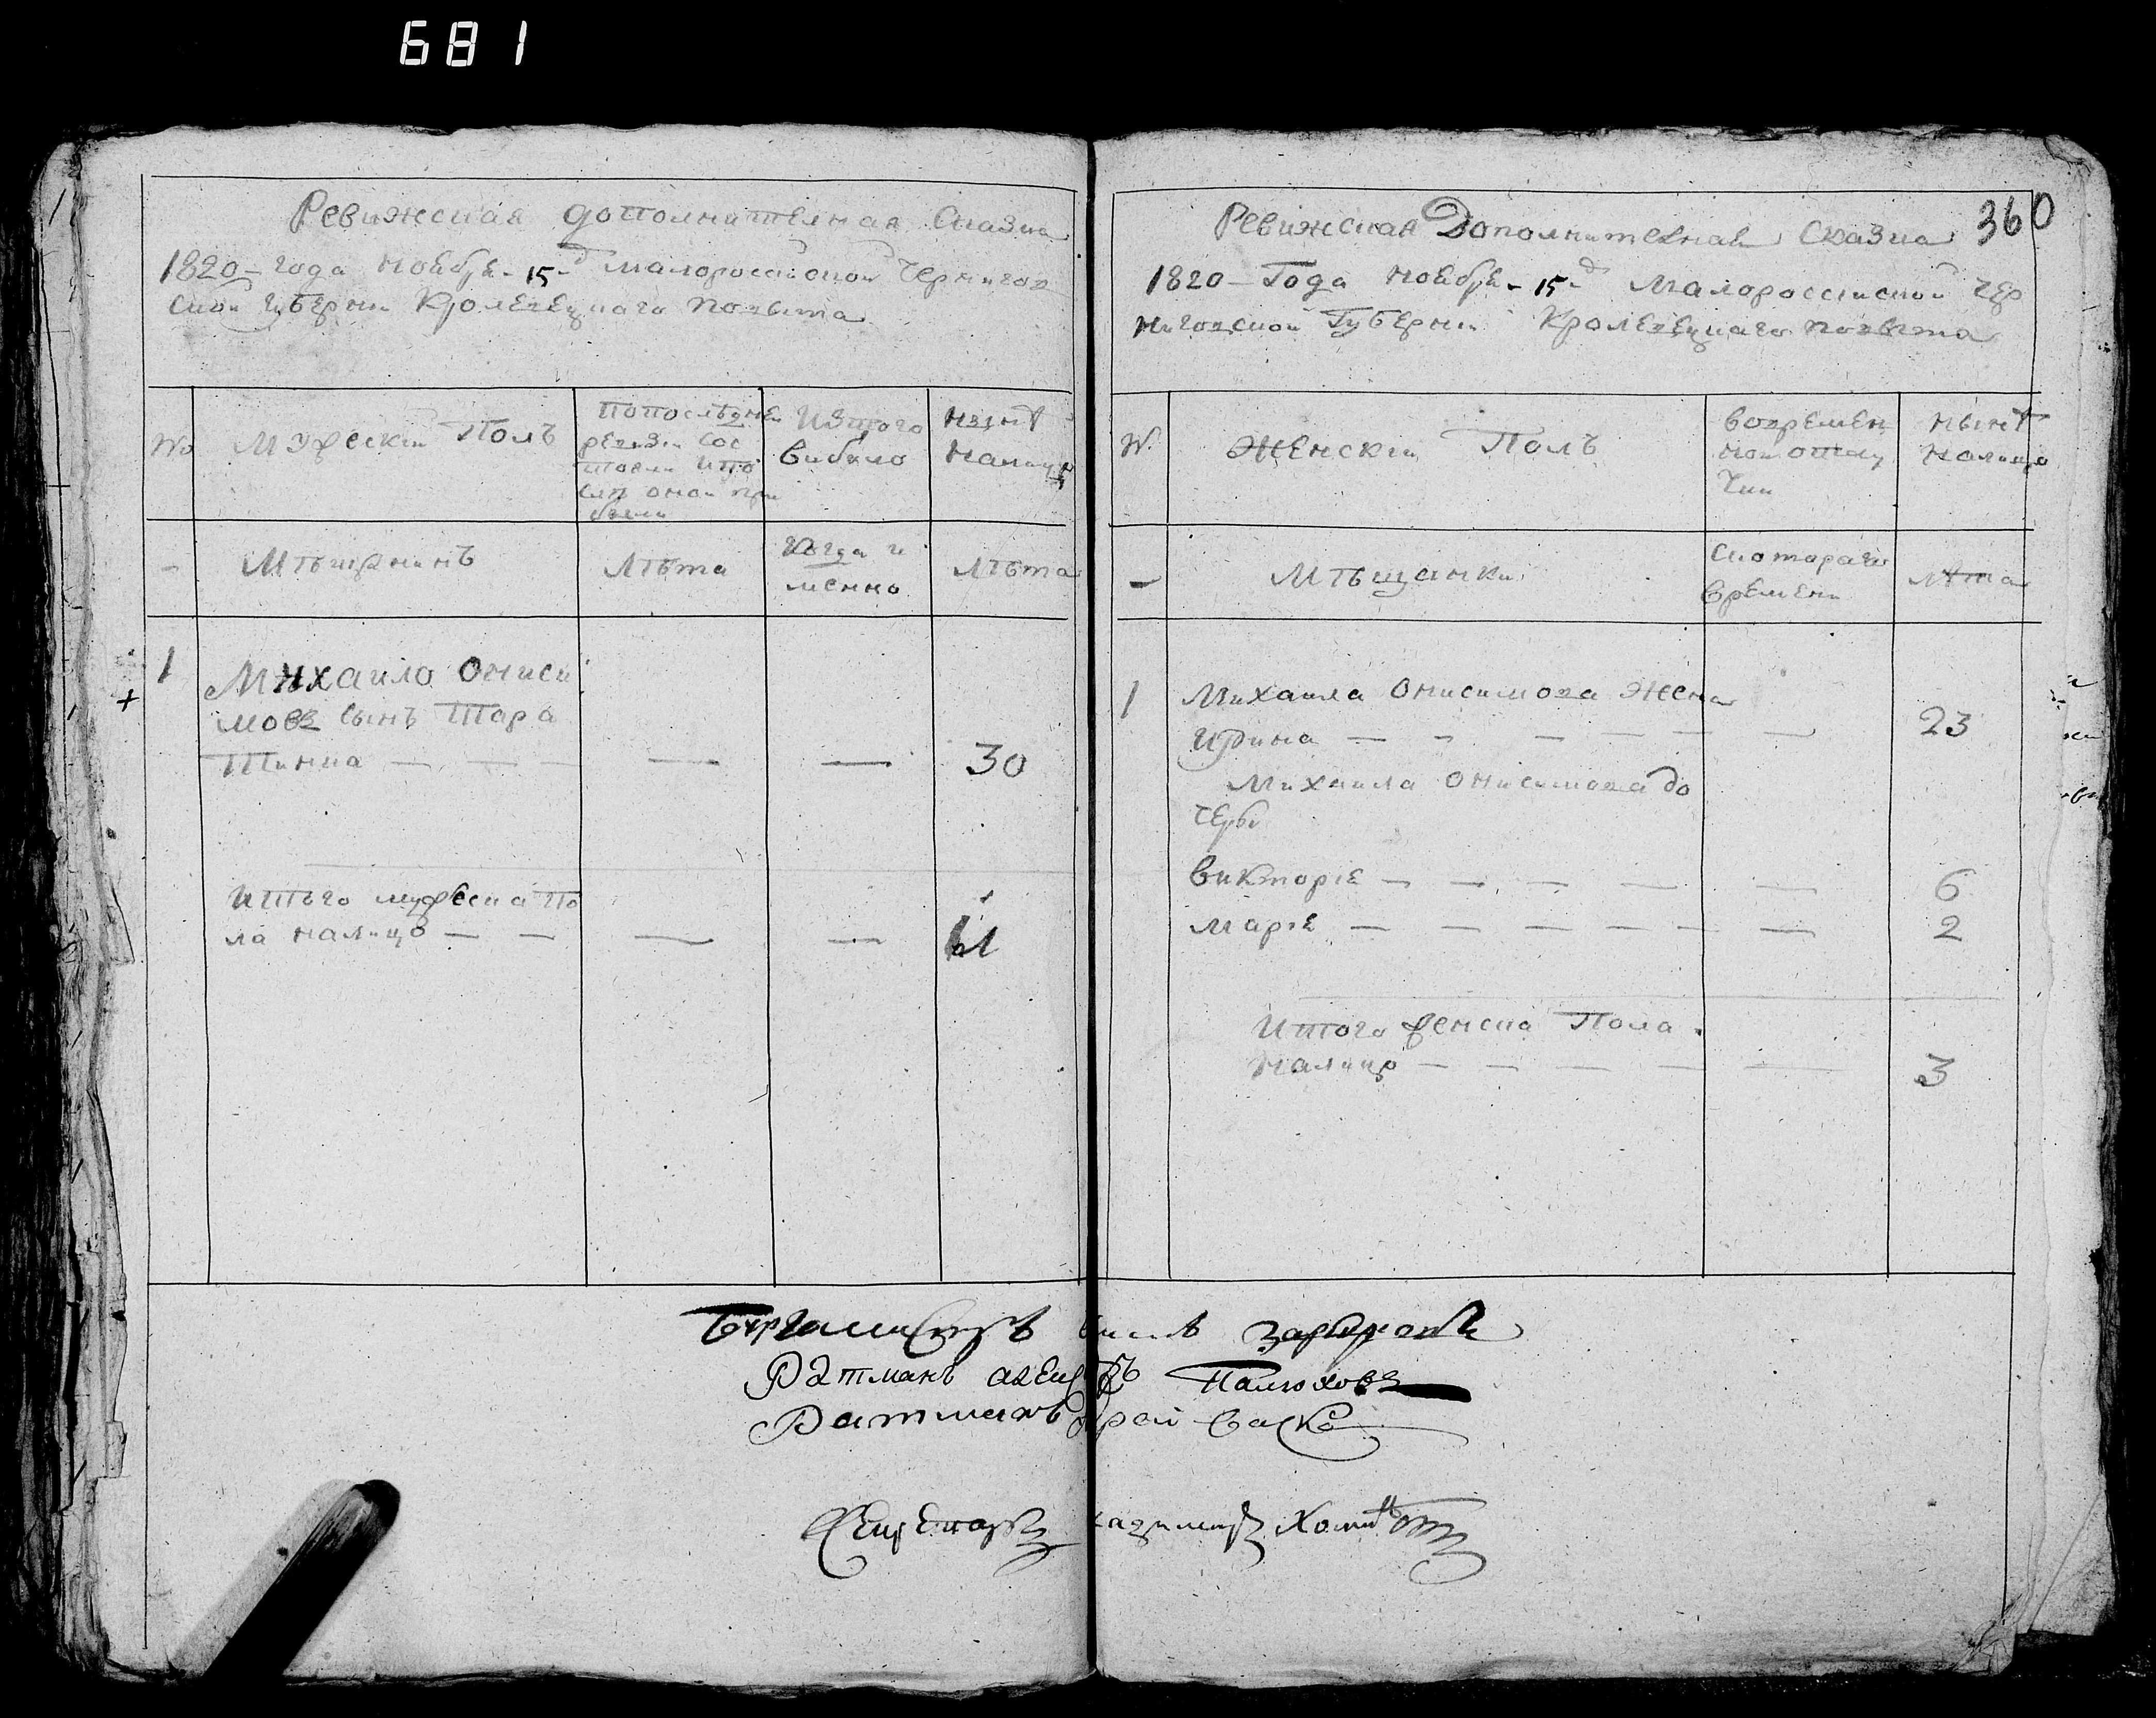 681
Ревижская дополнителная Сказка
1820 – года ноября – 15 – д Малороссийской Чернигов
ской губернии Кролевецкаго повѣта
№ Мужескій Полъ
попослѣдней
ревизіи сос
тояли ипо
слѣ оной при
были
Изтого
выбыло
Нынѣ
налицо
– Мѣщанинъ
Лѣта
когда и
менно
Лѣта
1 Михаило Ониси
мовъ сынъ Тара
— — — — — 30
Итого мужеска по
ла налицо — — — — 1
360
Ревижская Дополнителная Сказка
1820 – Года ноября – 15 – д Малороссійской Чер
ниговской Губерніи Кролевецкаго повѣта
№ Женскій Полъ
вовремен
ной отлу
чки
нынѣ
налицо
– Мѣщанки
Скотораго
времени
лѣта
1 Михаила Онисимова жена
Ирина — — — — — — 23
Михаила Онисимова до
чери
Викторіе — — — — — 6
Маріе — — — — — — 2
Итого женска Пола
налицо — — — — — 3
Бургомистръ
Ратманъ Палюховъ
Ратманъ
Секретарь